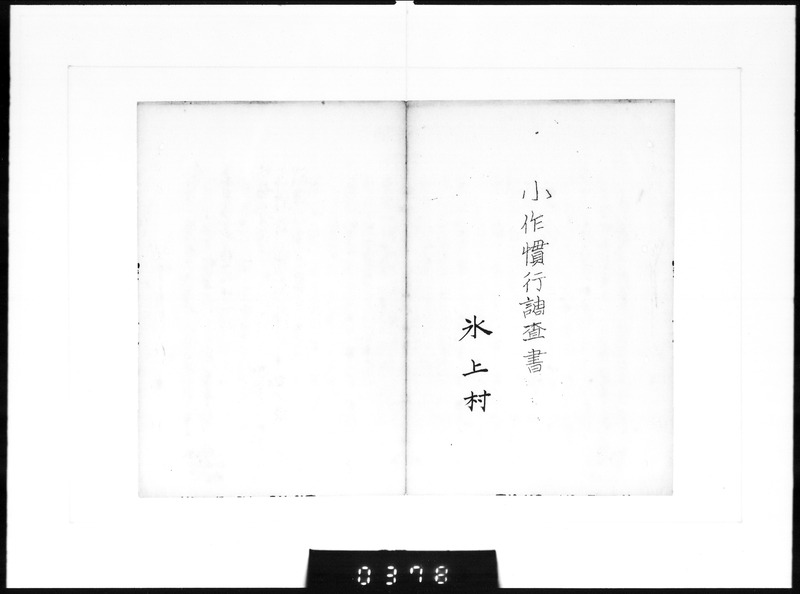 小作慣行調査書
氷上村
0378